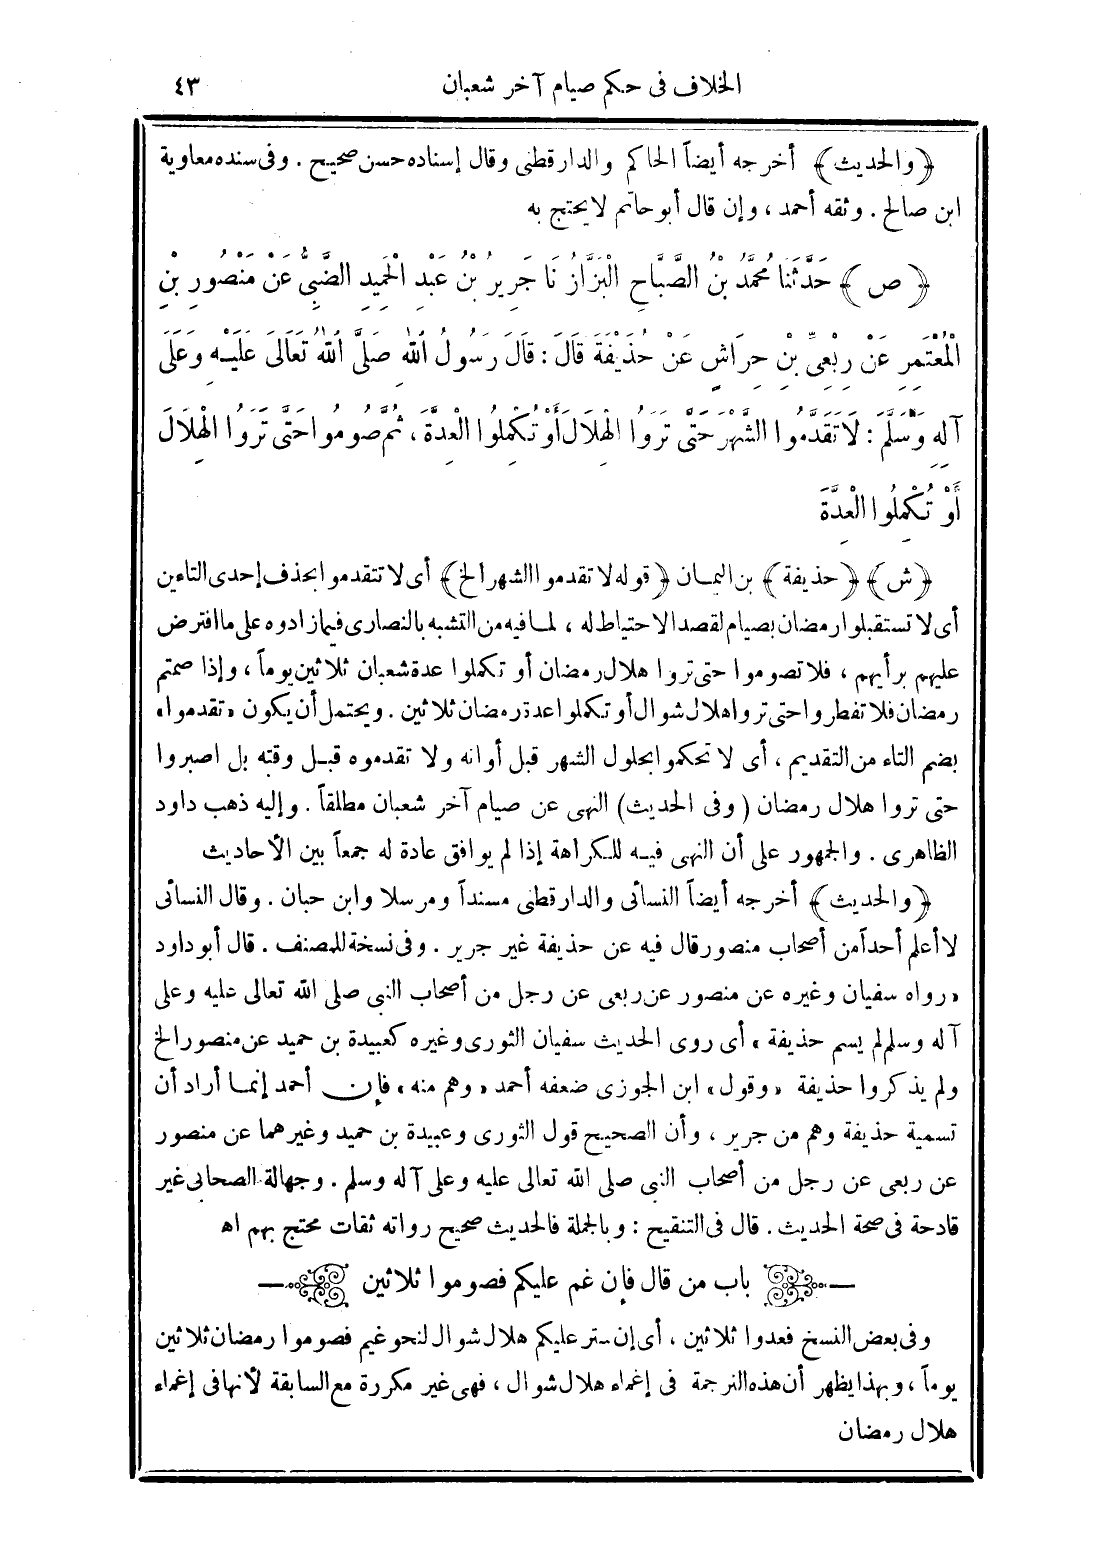 الخلاف فى حكم صيام آخر شعبان ٤٣
﴿والحديث﴾ أخرجه أيضاً الحاكم والدارقطنى وقال إسناده حسن صحيح . وفى سنده معاوية
ابن صالح . وثقه أحمد ، وإن قال أبو حاتم لا يحتج به
﴿ص﴾ حَدَّثَنَا مُحَمَّدُ بْنُ الصَّبَّاحِ الْبَزَّازُ نَا جَرِيرُ بْنُ عَبْدِ الْحَمِيدِ الضَّبِّىُّ عَنْ مَنْصُورِ بْنِ
الْمُعْتَمِرِ عَنْ رِبْعِىِّ بْنِ حِرَاشٍ عَنْ حُذَيْفَةَ قَالَ : قَالَ رَسُولُ اللهِ صَلَّى اللهُ تَعَالَى عَلَيْهِ وَعَلَى
آلِهِ وَسَلَّمَ : لَا تَقَدَّمُوا الشَّهْرَ حَتَّى تَرَوُا الْهِلَالَ أَوْ تُكْمِلُوا الْعِدَّةَ ، ثُمَّ صُومُوا حَتَّى تَرَوُا الْهِلَالَ
أَوْ تُكْمِلُوا الْعِدَّةَ
﴿ش﴾ ﴿حذيفة﴾ بن اليمان ﴿قوله لا تقدموا الشهر الخ﴾ أى لا تتقدموا بحذف إحدى التاءين
أى لا تستقبلوا رمضان بصيام لقصد الاحتياط له ، لما فيه من التشبه بالنصارى فيما زادوه على ما افترض
عليهم برأيهم ، فلا تصوموا حتى تروا هلال رمضان أو تكملوا عدة شعبان ثلاثين يوماً ، وإذا صمتم
رمضان فلا تفطروا حتى تروا هلال شوال أو تكملوا عدة رمضان ثلاثين . ويحتمل أن يكون «تقدموا»
بضم التاء من التقديم ، أى لا تحكموا بحلول الشهر قبل أوانه ولا تقدموه قبل وقته بل اصبروا
حتى تروا هلال رمضان (وفى الحديث) النهى عن صيام آخر شعبان مطلقاً . وإليه ذهب داود
الظاهرى . والجمهور على أن النهى فيه للكراهة إذا لم يوافق عادة له جمعاً بين الأحاديث
﴿والحديث﴾ أخرجه أيضاً النسائى والدارقطنى مسنداً ومرسلا وابن حبان . وقال النسائى
لا أعلم أحداً من أصحاب منصور قال فيه عن حذيفة غير جرير . وفى نسخة للمصنف . قال أبو داود
«رواه سفيان وغيره عن منصور عن ربعى عن رجل من أصحاب النبى صلى الله تعالى عليه وعلى
آله وسلم لم يسم حذيفة» أى روى الحديث سفيان الثورى وغيره كعبيدة بن حميد عن منصور الخ
ولم يذكروا حذيفة «وقول» ابن الجوزى ضعفه أحمد «وهم منه» فإن أحمد إنما أراد أن
تسمية حذيفة وهم من جرير ، وأن الصحيح قول الثورى وعبيدة بن حميد وغيرهما عن منصور
عن ربعى عن رجل من أصحاب النبى صلى الله تعالى عليه وعلى آله وسلم . وجهالة الصحابى غير
قادحة فى صحة الحديث . قال فى التنقيح : وبالجملة فالحديث صحيح رواته ثقات محتج بهم اه
باب من قال فإن غم عليكم فصوموا ثلاثين
وفى بعض النسخ فعدوا ثلاثين ، أى إن ستر عليكم هلال شوال لنحو غيم فصوموا رمضان ثلاثين
يوماً ، وبهذا يظهر أن هذه الترجمة فى إغماء هلال شوال ، فهى غير مكررة مع السابقة لأنها فى إغماء
هلال رمضان